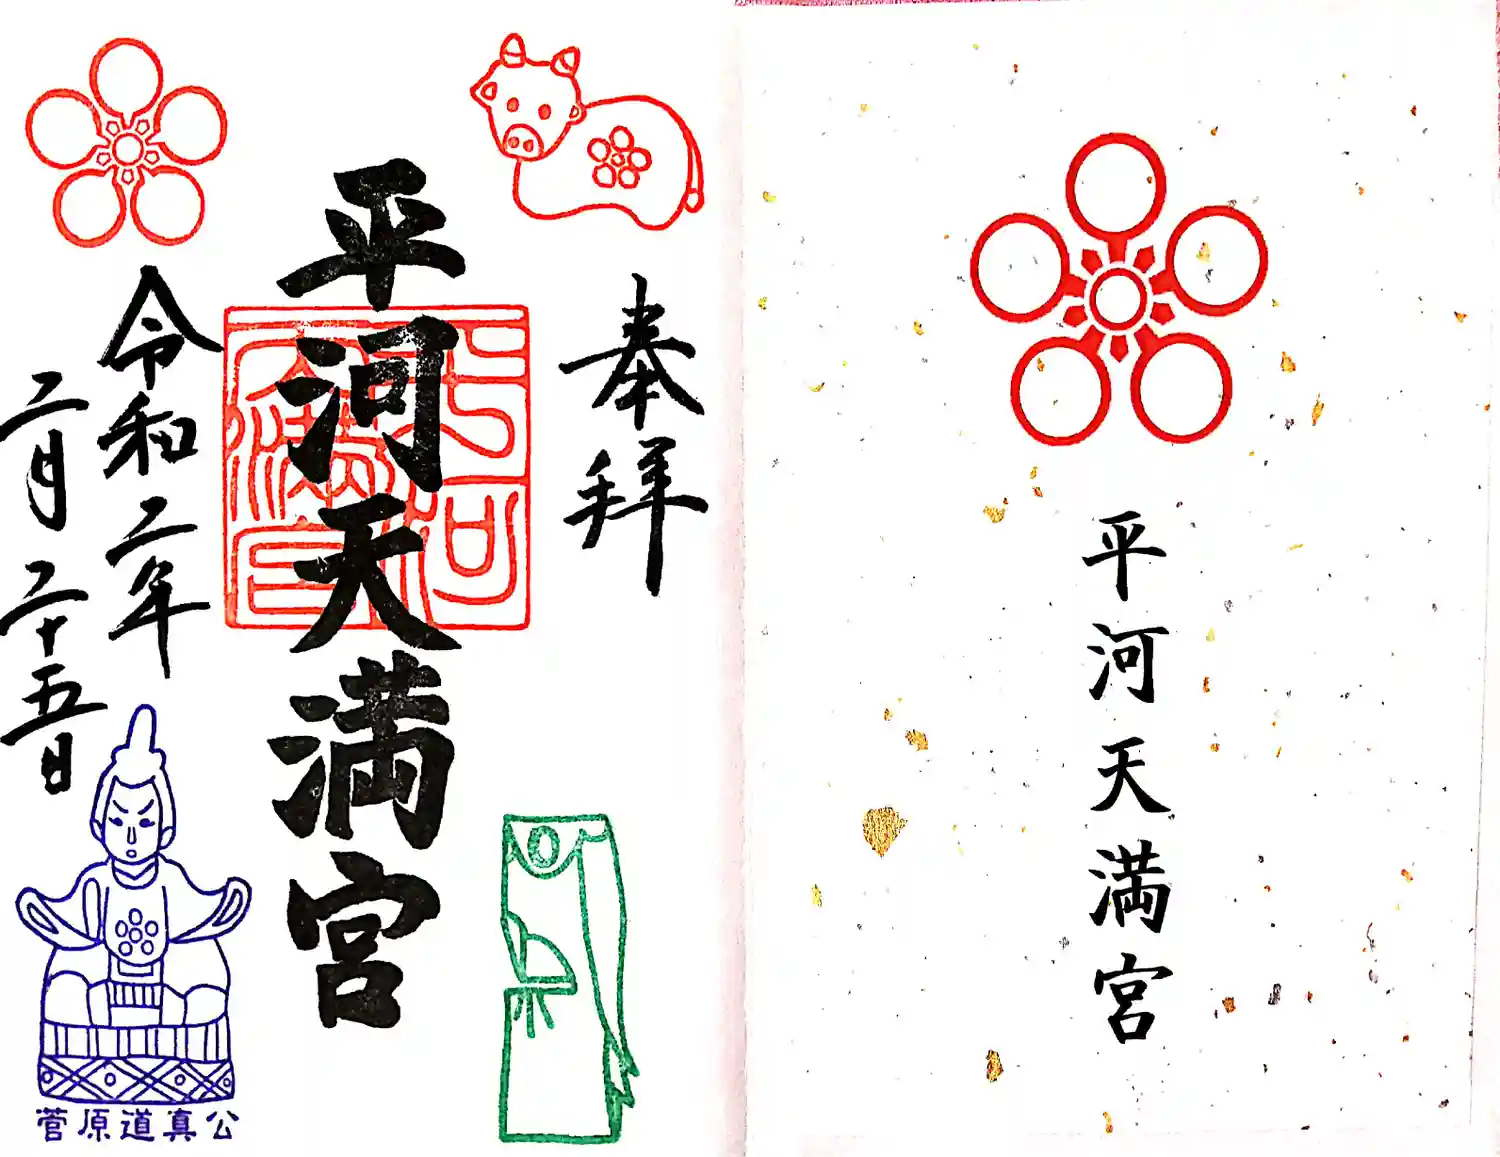 奉拝
平河天満宮
令和二年
二月二十五日
菅原道真公
平河天満宮